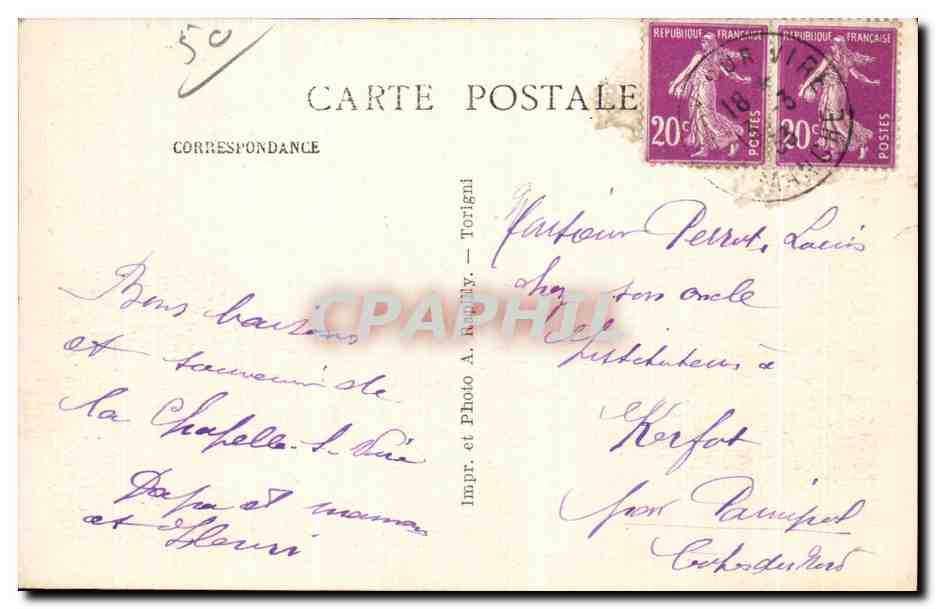 50
CARTE POSTALE
CORRESPONDANCE
REPUBLIQUE FRANÇAISE
20c
POSTES
REPUBLIQUE FRANÇAISE
20c
POSTES
SUR VIRE
18 3
MANCHE
Impr. et Photo A. Rapilly. — Torigni
CPAPHIL
Bons baisers
et souvenir de
la Chapelle-S-Vire
Papa et maman
et Henri
Monsieur Perrot Louis
chez son oncle
Instituteur à
Kerfot
par Paimpol
Côtes du Nord